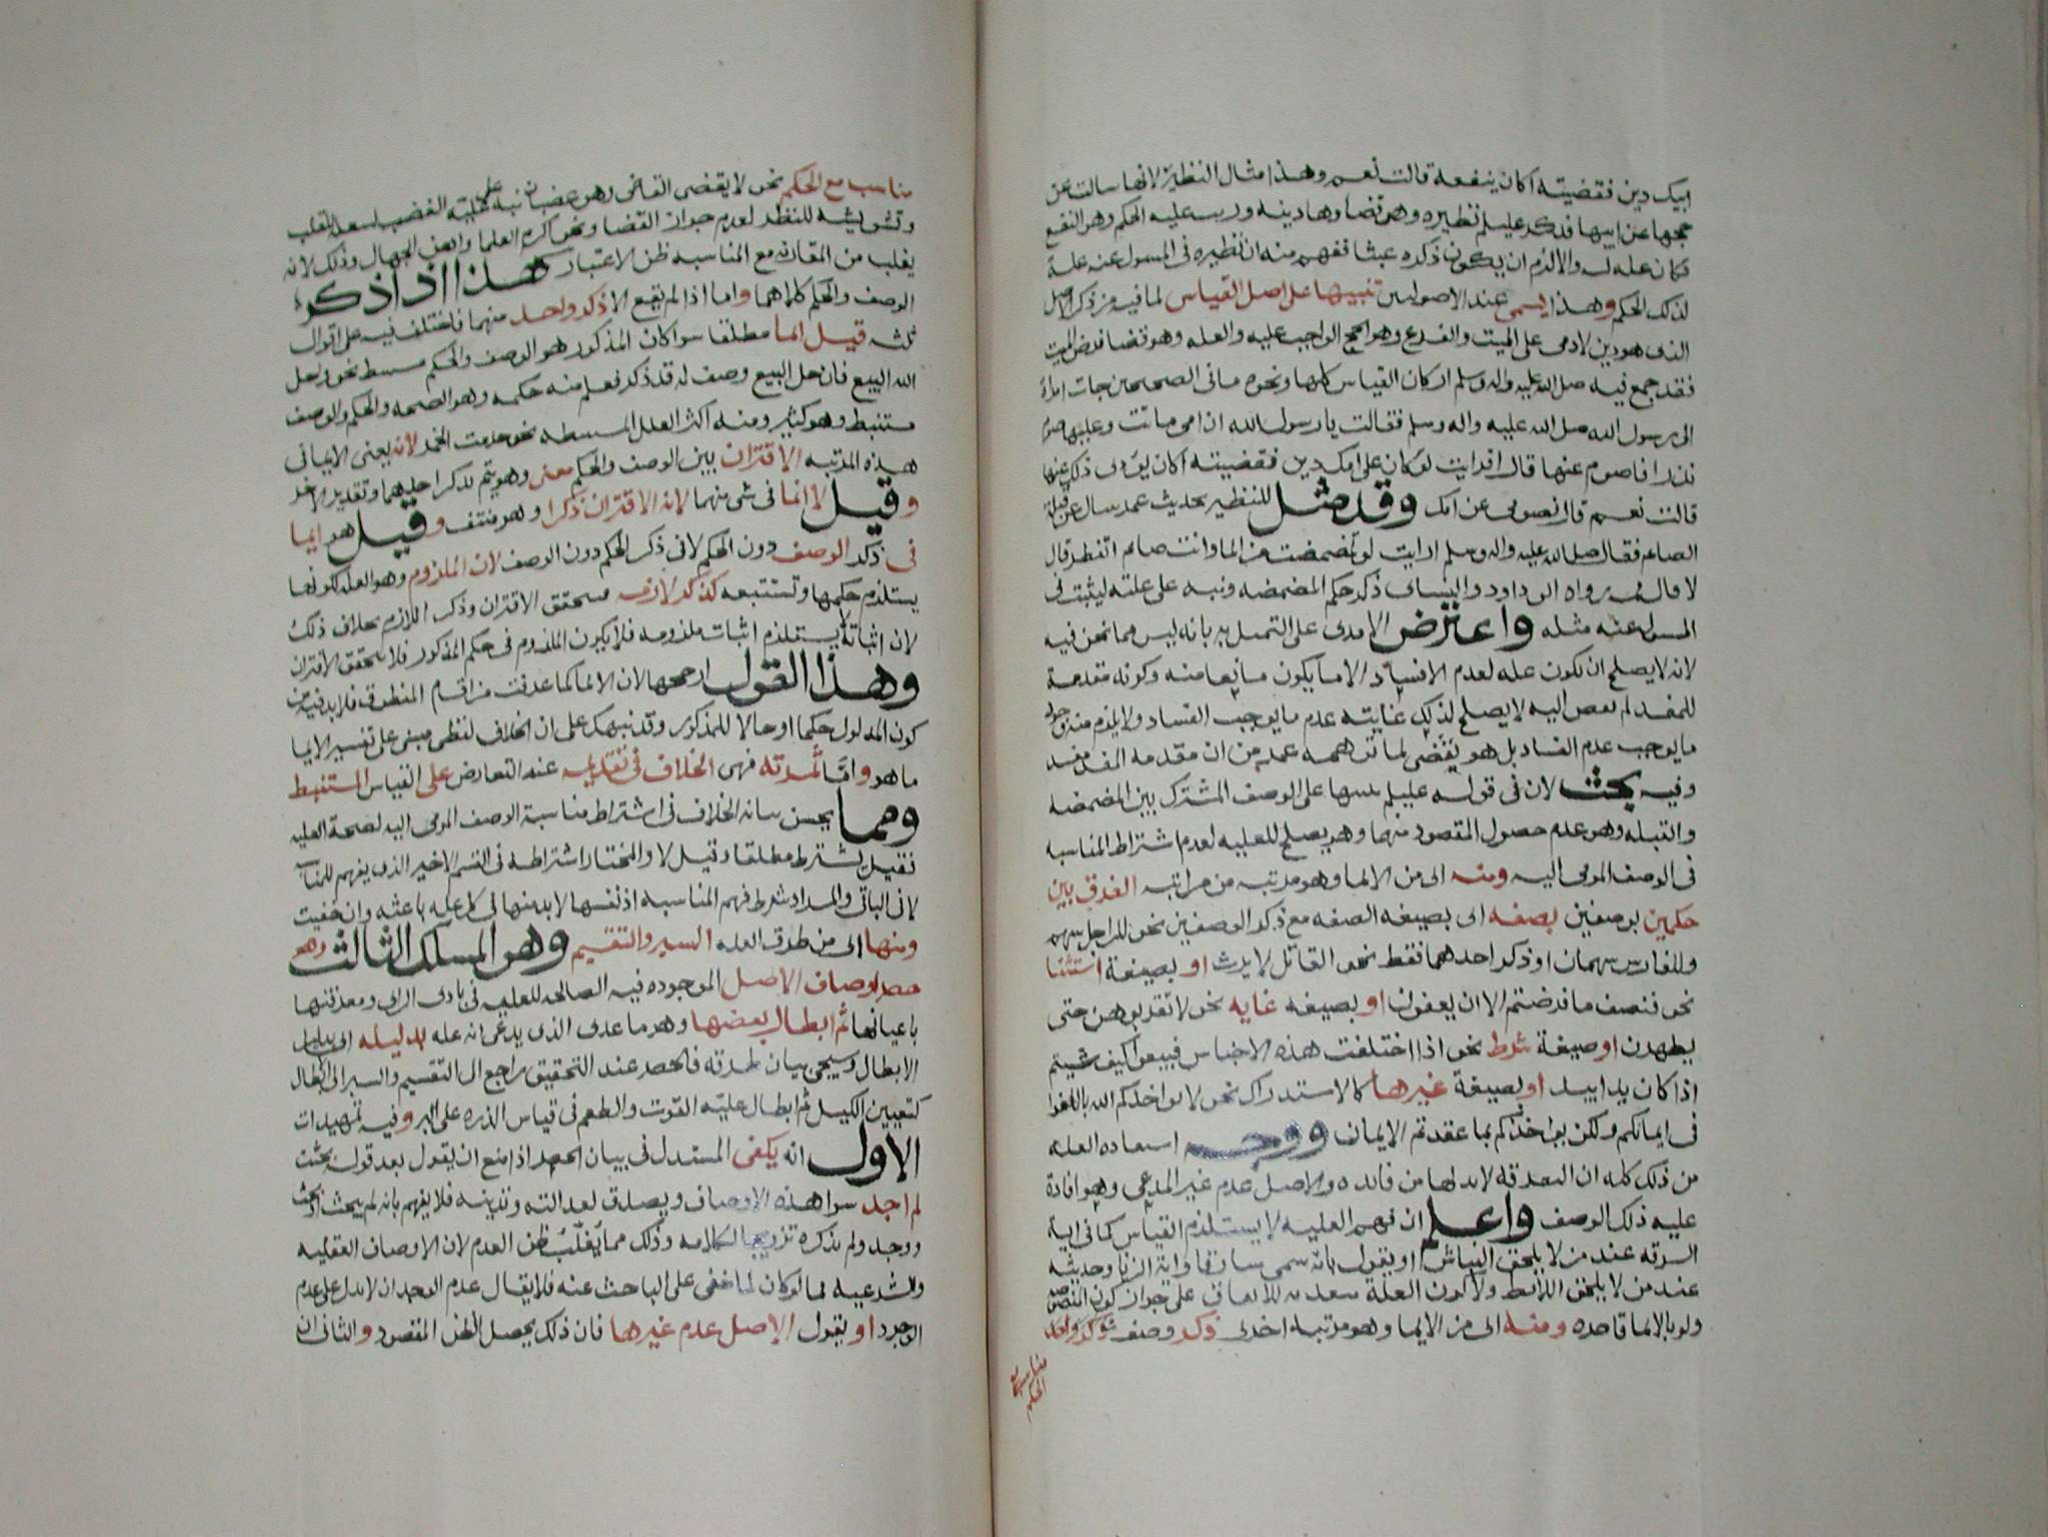 ابيك دين فقضيته اكان ينفعه قالت نعم وهذا مثال النظير لانها سالت عن
حجها عن ابيها فذكر عليلم نظيره وهو قضاوها دينه ورتب عليه الحكم وهو النفع
فكان عله له والالزم ان يكون ذكره عبثا ففهم منه ان نظيره في المسول عنه علة
لذلك الحكم وهذا يسمى عند الاصولين تنبيها على اصل القياس لما فيه من ذكر الاصل
الذى هو دين لادمى على الميت والفرع وهو الحج الواجب عليه والعله وهو قضا فرض الميت
فقد جمع فيه صلى الله عليه واله وسلم اركان القياس كلها ونحوه ما فى الصحيحين جات امراة
الى رسول الله صلى الله عليه واله وسلم فقالت يا رسول الله ان امى ماتت وعليها صوم
نذر افاصوم عنها قال افرايت لو كان على امك دين فقضيته اكان يودى ذلك عنها
قالت نعم قال فصومى عن امك وقد مثل للنظير بحديث عمر سال عن قبلة
الصائم فقال صلى الله عليه واله وسلم ارايت لو تمضمضت من الما وانت صائم اتفطر قال
لا قال رواه ابى داود والنساى ذكر حكم المضمضه ونبه على علته ليثبت فى
المسول عنه مثله واعترض الامدى على التمثيل به بانه ليس مما نحن فيه
لانه لا يصلح ان تكون عله لعدم الافساد الا ما يكون مانعا منه وكونه مقدمة
للمفسد لم تفض اليه لا يصلح لذلك غايته عدم ما يوجب الفساد ولا يلزم منه وجود
ما يوجب عدم الفساد بل هو نقض لما توهمه عمر من ان مقدمه المفسد مفسد
وفيه بحث لان فى قوله عليلم تنبيها على الوصف المشترك بين المضمضه
والقبله وهو عدم حصول المقصود منهما وهو يصلح للعليه لعدم اشتراط المناسبه
فى الوصف المومى اليه ومنه اى من الايما وهو مرتبه من مراتبه الفرق بين
حكمين بوصفين بصفه اى بصيغه الصفه مع ذكر الوصفين نحو للراجل سهم
وللفارس سهمان او ذكر احدهما فقط نحو القاتل لا يرث او بصيغة استثنا
نحو فنصف ما فرضتم الا ان يعفون او بصيغه غايه نحو لا تقربوهن حتى
يطهرن او صيغة شرط نحو اذا اختلفت هذه الاجناس فبيعوا كيف شيتم
اذا كان يدا بيد او بصيغة غيرها كالاستدراك نحو لا يواخذكم الله باللغو
فى ايمانكم ولكن يواخذكم بما عقدتم الايمان ووجه استفاده العله
من ذلك كله ان التفرقه لابد لها من فائده والاصل عدم غير المدعى وهو افادة
عليه ذلك الوصف واعلم ان فهم العليه لا يستلزم القياس كما فى اية
السرقه عند من لا يلحق النباش او يقول بانه سمى سارقا واية الزنا وحديثه
عند من لا يلحق اللائط ولا كون العلة متعديه للاتفاق على جواز كون المنصوصه
ولو بالايما قاصره ومنه اى من الايما وهو مرتبة اخرى ذكر وصف
مناسب
الحكم
مناسب مع الحكم نحو لا يقضى القاضى وهو غضبان نبه على علية الغضب لشغله القلب
وتشويشه للنظر لعدم جواز القضا ونحو اكرم العلما واهن الجهال وذلك لانه
يغلب من المقارنه مع المناسبه ظن الاعتبار هذا اذا ذكر
الوصف والحكم كلاهما واما اذا لم يقع الا ذكر واحد منهما فاختلف فيه على اقوال
ثلثه قيل ايما مطلقا سوا كان المذكور هو الوصف والحكم مستنبط نحو واحل
الله البيع فان حل البيع وصف له قد ذكر فعلم منه حكمه وهو الصحه والحكم والوصف
مستنبط وهو كثير ومنه اكثر العلل المستنبطه نحو حرمت الخمر لانه يعنى الايما فى
هذه المرتبه الاقتران بين الوصف والحكم معنى وهو يتم بذكر احدهما وتقدير الاخر
وقيل لا ايما فى شى منهما لانه الاقتران ذكرا وهو منتف وقيل هو ايما
فى ذكر الوصف دون الحكم لا فى ذكر الحكم دون الوصف لان الملزوم وهو العله لكونها
يستلزم حكمها وتستتبعه كذكر لازمه فيتحقق الاقتران وذكر اللازم بخلاف ذلك
لان اثباته لا يستلزم اثبات ملزومه فلا يكون الملزوم فى حكم المذكور فلا يتحقق الاقتران
وهذا القول ارجحها لان الايما كما عرفت من اقسام المنطوق فلا بد فيه من
كون المدلول حكما او حالا للمذكور وقد نبهك على ان الخلاف لفظى مبنى على تفسير الايما
ما هو واما ثمرته فهى الخلاف فى تقديمه عند التعارض على القياس المستنبط
ومما يحسن بيانه الخلاف فى اشتراط مناسبة الوصف المومى اليه لصحة العليه
فقيل يشترط مطلقا وقيل لا والمختار اشتراطه فى القسم الاخير الذى يفهم للمناسبه
لا فى الباقى والمراد شرط فهم المناسبه اذ نفسها لابد منها فى كل عله باعثه وان خفيت
ومنها اى من طرق العله السبر والتقسيم وهو المسلك الثالث وهو
حصر اوصاف الاصل الموجوده فيه الصالحه للعليه فى بادى الراى ومعرفتها
باعيانها ثم ابطال بعضها وهو ما عدى الذى يدعى انه عله بدليله اى بدليل
الابطال وسيجى بيان طرقه فالحصر عند التحقيق راجع الى التقسيم والسبر الى ابطال
كتعيين الكيل ثم ابطال علية القوت والطعم فى قياس الذره على البر وفيه تمهيدات
الاول انه يكفى المستدل فى بيان الحصر اذا منع ان يقول بعد قوله بحثت
لم اجد سوا هذه الاوصاف ويصدق لعدالته وتدينه فلا يفهم بانه لم يبحث او بحث
ووجد ولم يذكره ترويجا لكلامه وذلك مما يغلب ظن العدم لان الاوصاف العقليه
والشرعيه مما لو كان لما خفى على الباحث عنه فلا يقال عدم الوجدان لا يدل على عدم
الوجود او يقول الاصل عدم غيرها فان ذلك يحصل الظن المقصود والثانى ان